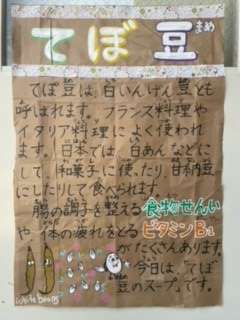 てぼ豆
まめ
てぼ豆は、白いんげん豆とも
呼ばれます。フランス料理や
イタリア料理によく使われ
ます。日本では、白あんなどに
して、和菓子に使ったり、甘納豆
にしたりして食べられます。
腸の調子を整える食物せんい
や、体の疲れをとるビタミンB1
がたくさんあります。
今日は、てぼ
豆のスープです。
White beans